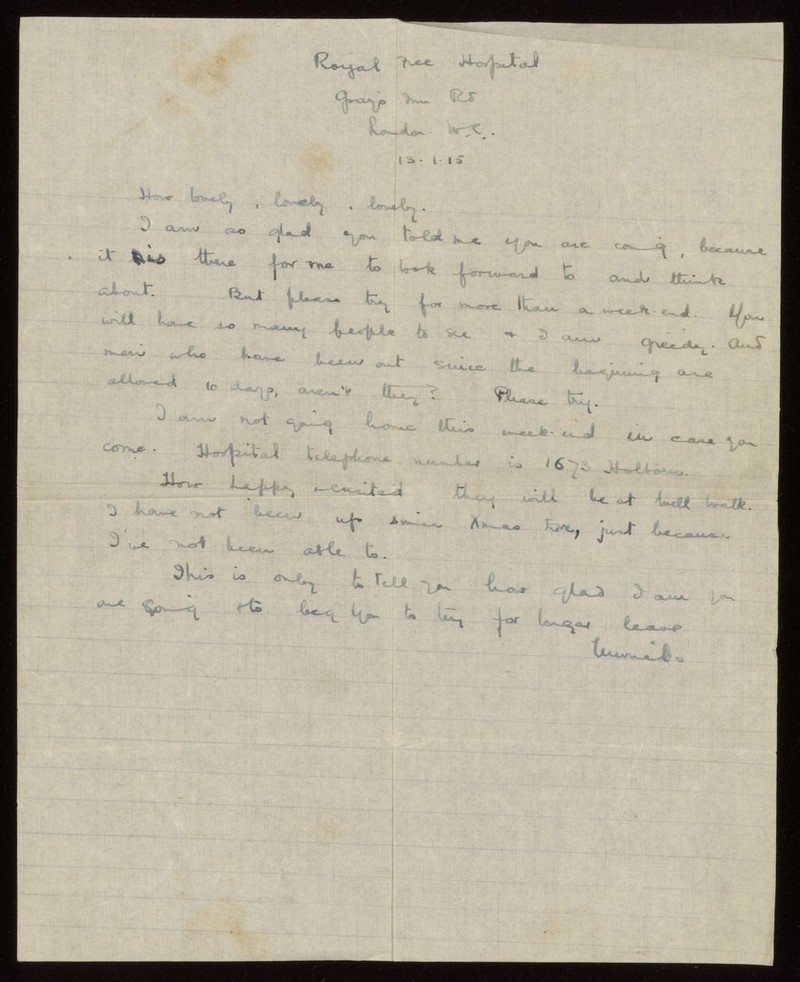 Royal Free Hospital
Gray's Inn Rd
London. W.C.
13.1.15
How lovely, lovely, lovely.
I am so glad you told me you are coming, because
it is there for me to look forward to and think
about. But please try for more than a week-end. You
will have so many people to see & I am greedy. And
men who have been out since the beginning are
allowed 10 days, aren't they? Please try.
I am not going home this week-end in case you
come. Hospital telephone number is 1673 Holborn.
How happy & excited they will be at Well Walk.
I have not been up since Xmas Eve, just because
I've not been able to.
This is only to tell you how glad I am you
are coming & to beg you to try for longer leave